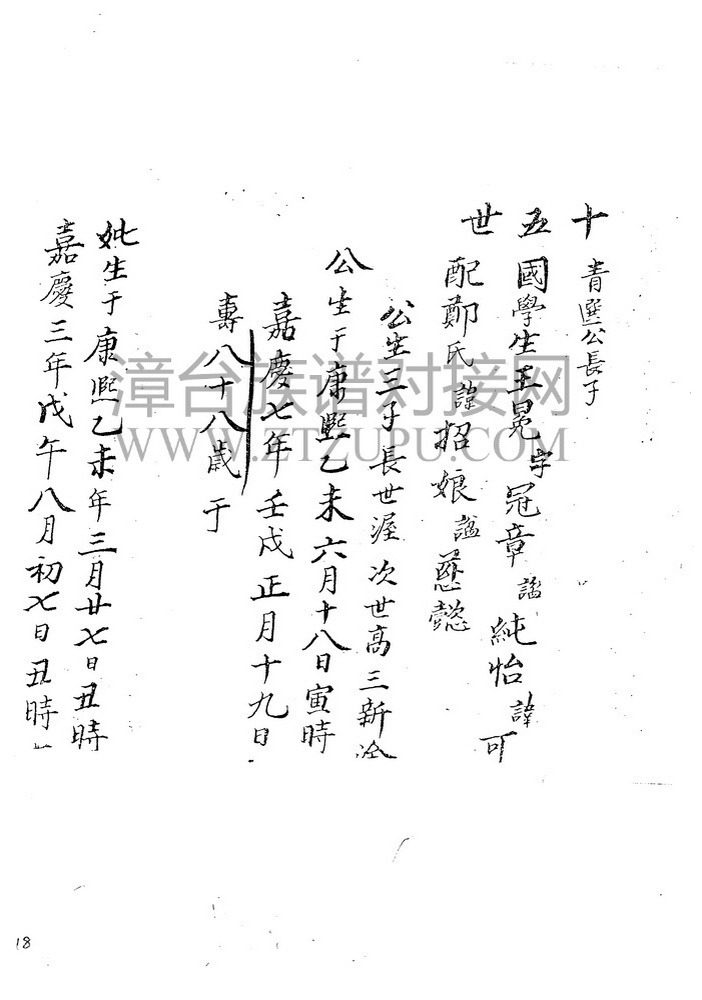 十五世
青選公長子
國學生王冕字冠章諡純怡諱可
配鄭氏諱招娘諡慈懿
公生三子長世渥次世高三新
公生于康熙乙未六月十八日寅時
嘉慶七年壬戌正月十九日
壽八十八歲于
妣生于康熙乙未年三月廿七日丑時
嘉慶三年戊午八月初七日丑時
漳台族谱对接网
WWW.ZTZUPU.COM
18